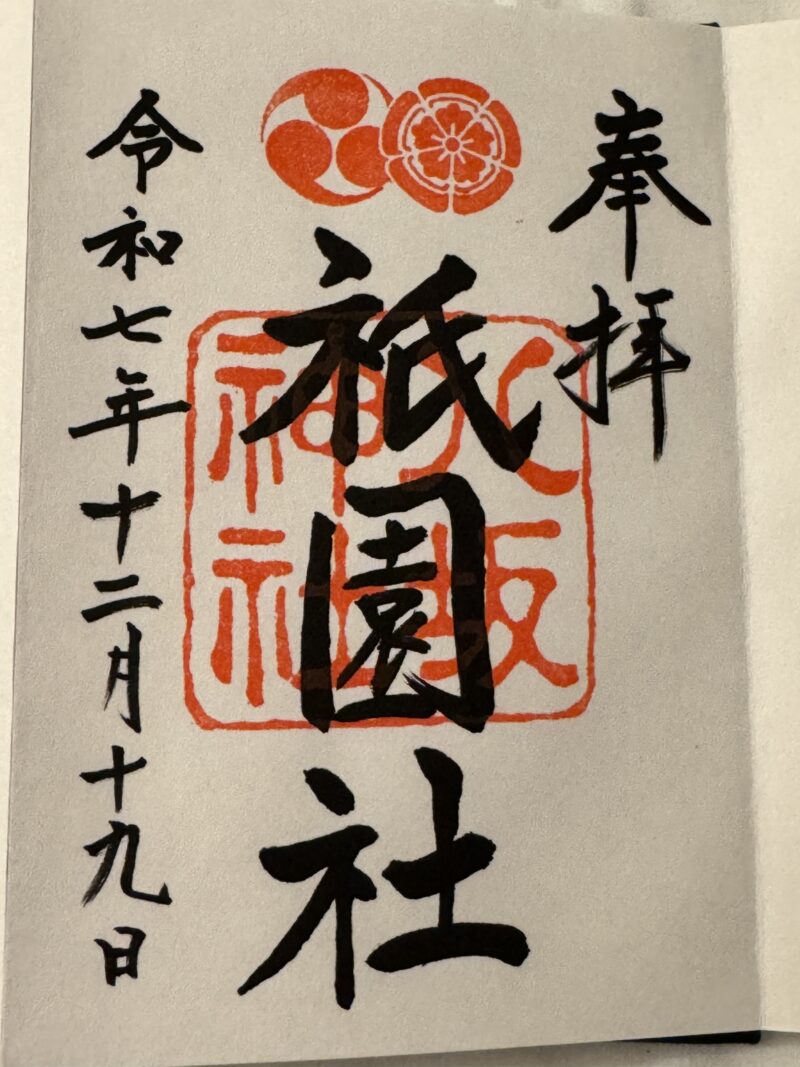 奉拝
八坂
神社
祇園社
令和七年十二月十九日